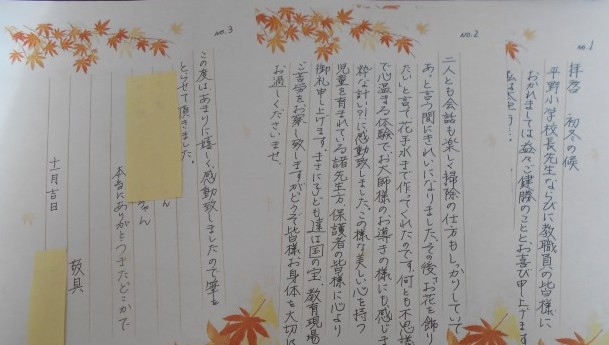 No.1
拝啓 初冬の候
平野小学校長先生ならびに教職員の皆様に
おかれましては益々ご健勝のこととお喜び申し上げます
No.2
二人とも会話も楽しく掃除の仕方もしっかりしていて
あっと言う間にきれいになりました。その後「お花を飾り
たい」と言って花手水まで作てくれたのです。何とも不思議
で心温まる体験でお大師様のお導きの様にも感じま
粋な計い?!に感動致しました。この様な美しい心を持つ
児童を育まれている諸先生方、保護者の皆様に心より
御礼申し上げます。まさに子ども達は国の宝 教育現場
ご苦労をお察し致しますがどうぞ皆様お身体を大切に
お過しくださいませ。
No.3
この度はあまりに嬉しく感動致しましたので筆を
とらせて頂きました。
ん
ちゃん
本当にありがとう またどこかで
敬具
十一月吉日